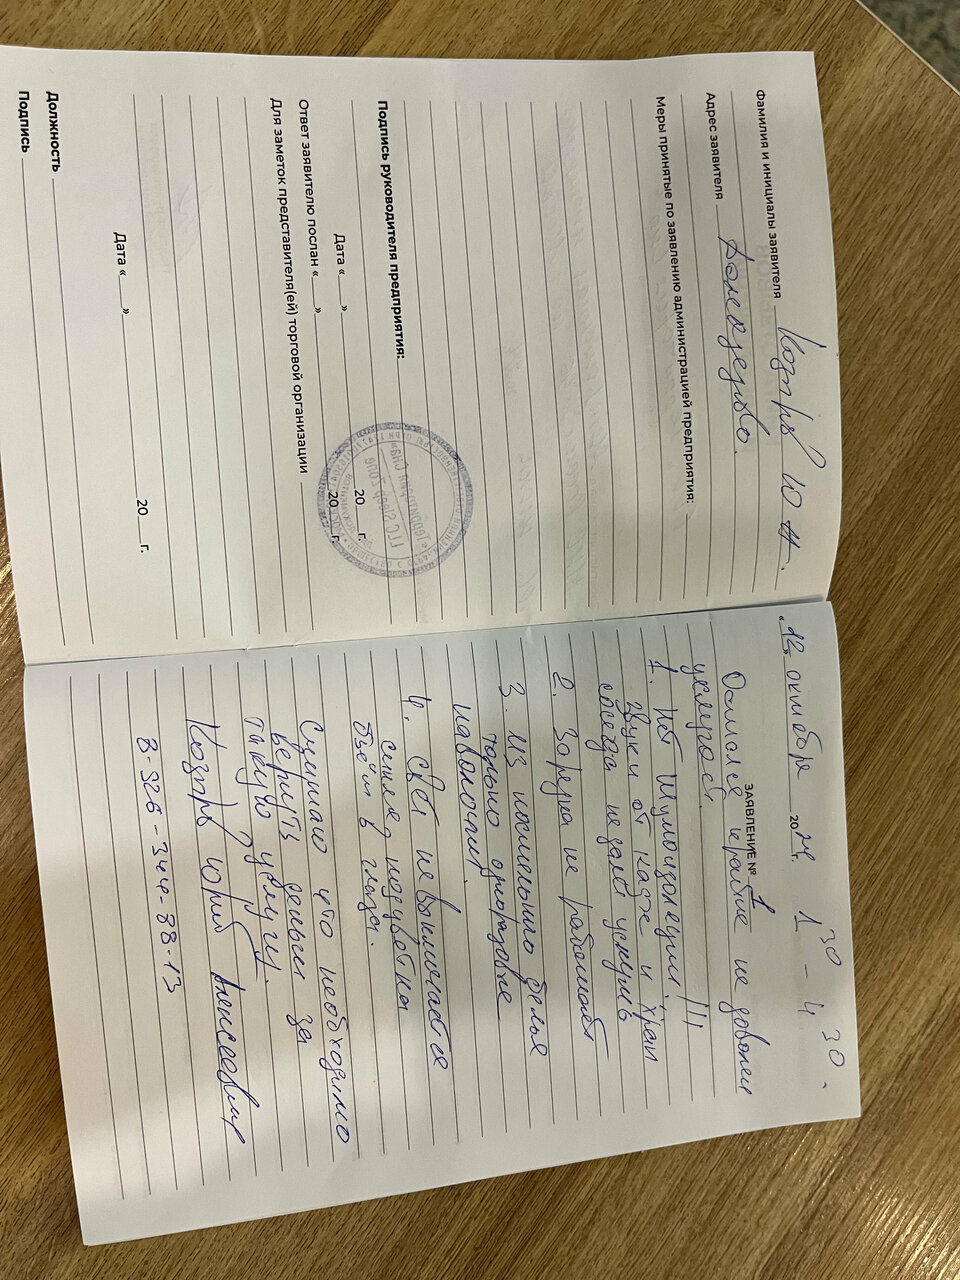 Фамилия и инициалы заявителя Козырь Ю А.
Адрес заявителя Домодедово.
Меры принятые по заявлению администрацией предприятия:
Подпись руководителя предприятия:
Дата « » 20 г.
Ответ заявителю послан « » 20 г.
Для заметок представителя(ей) торговой организации
Дата « » 20 г.
Должность
Подпись
«12» октября 2024 г. 1 30 - 4 30.
ЗАЯВЛЕНИЕ № 1
Остался крайне не доволен
услугой.
1. Нет Шумоизоляции!!!
Звуки от кафе и храп
соседа не дали уснуть
2. Зарядка не работает
3. Из постельного белья
только одноразовые
наволочки.
4. Свет не выключается
синяя подцветка
бьёт в глаза.
Считаю что необходимо
вернуть деньги за
такую услугу.
Козырь Юрий Алексеевич
8-926-344-88-13